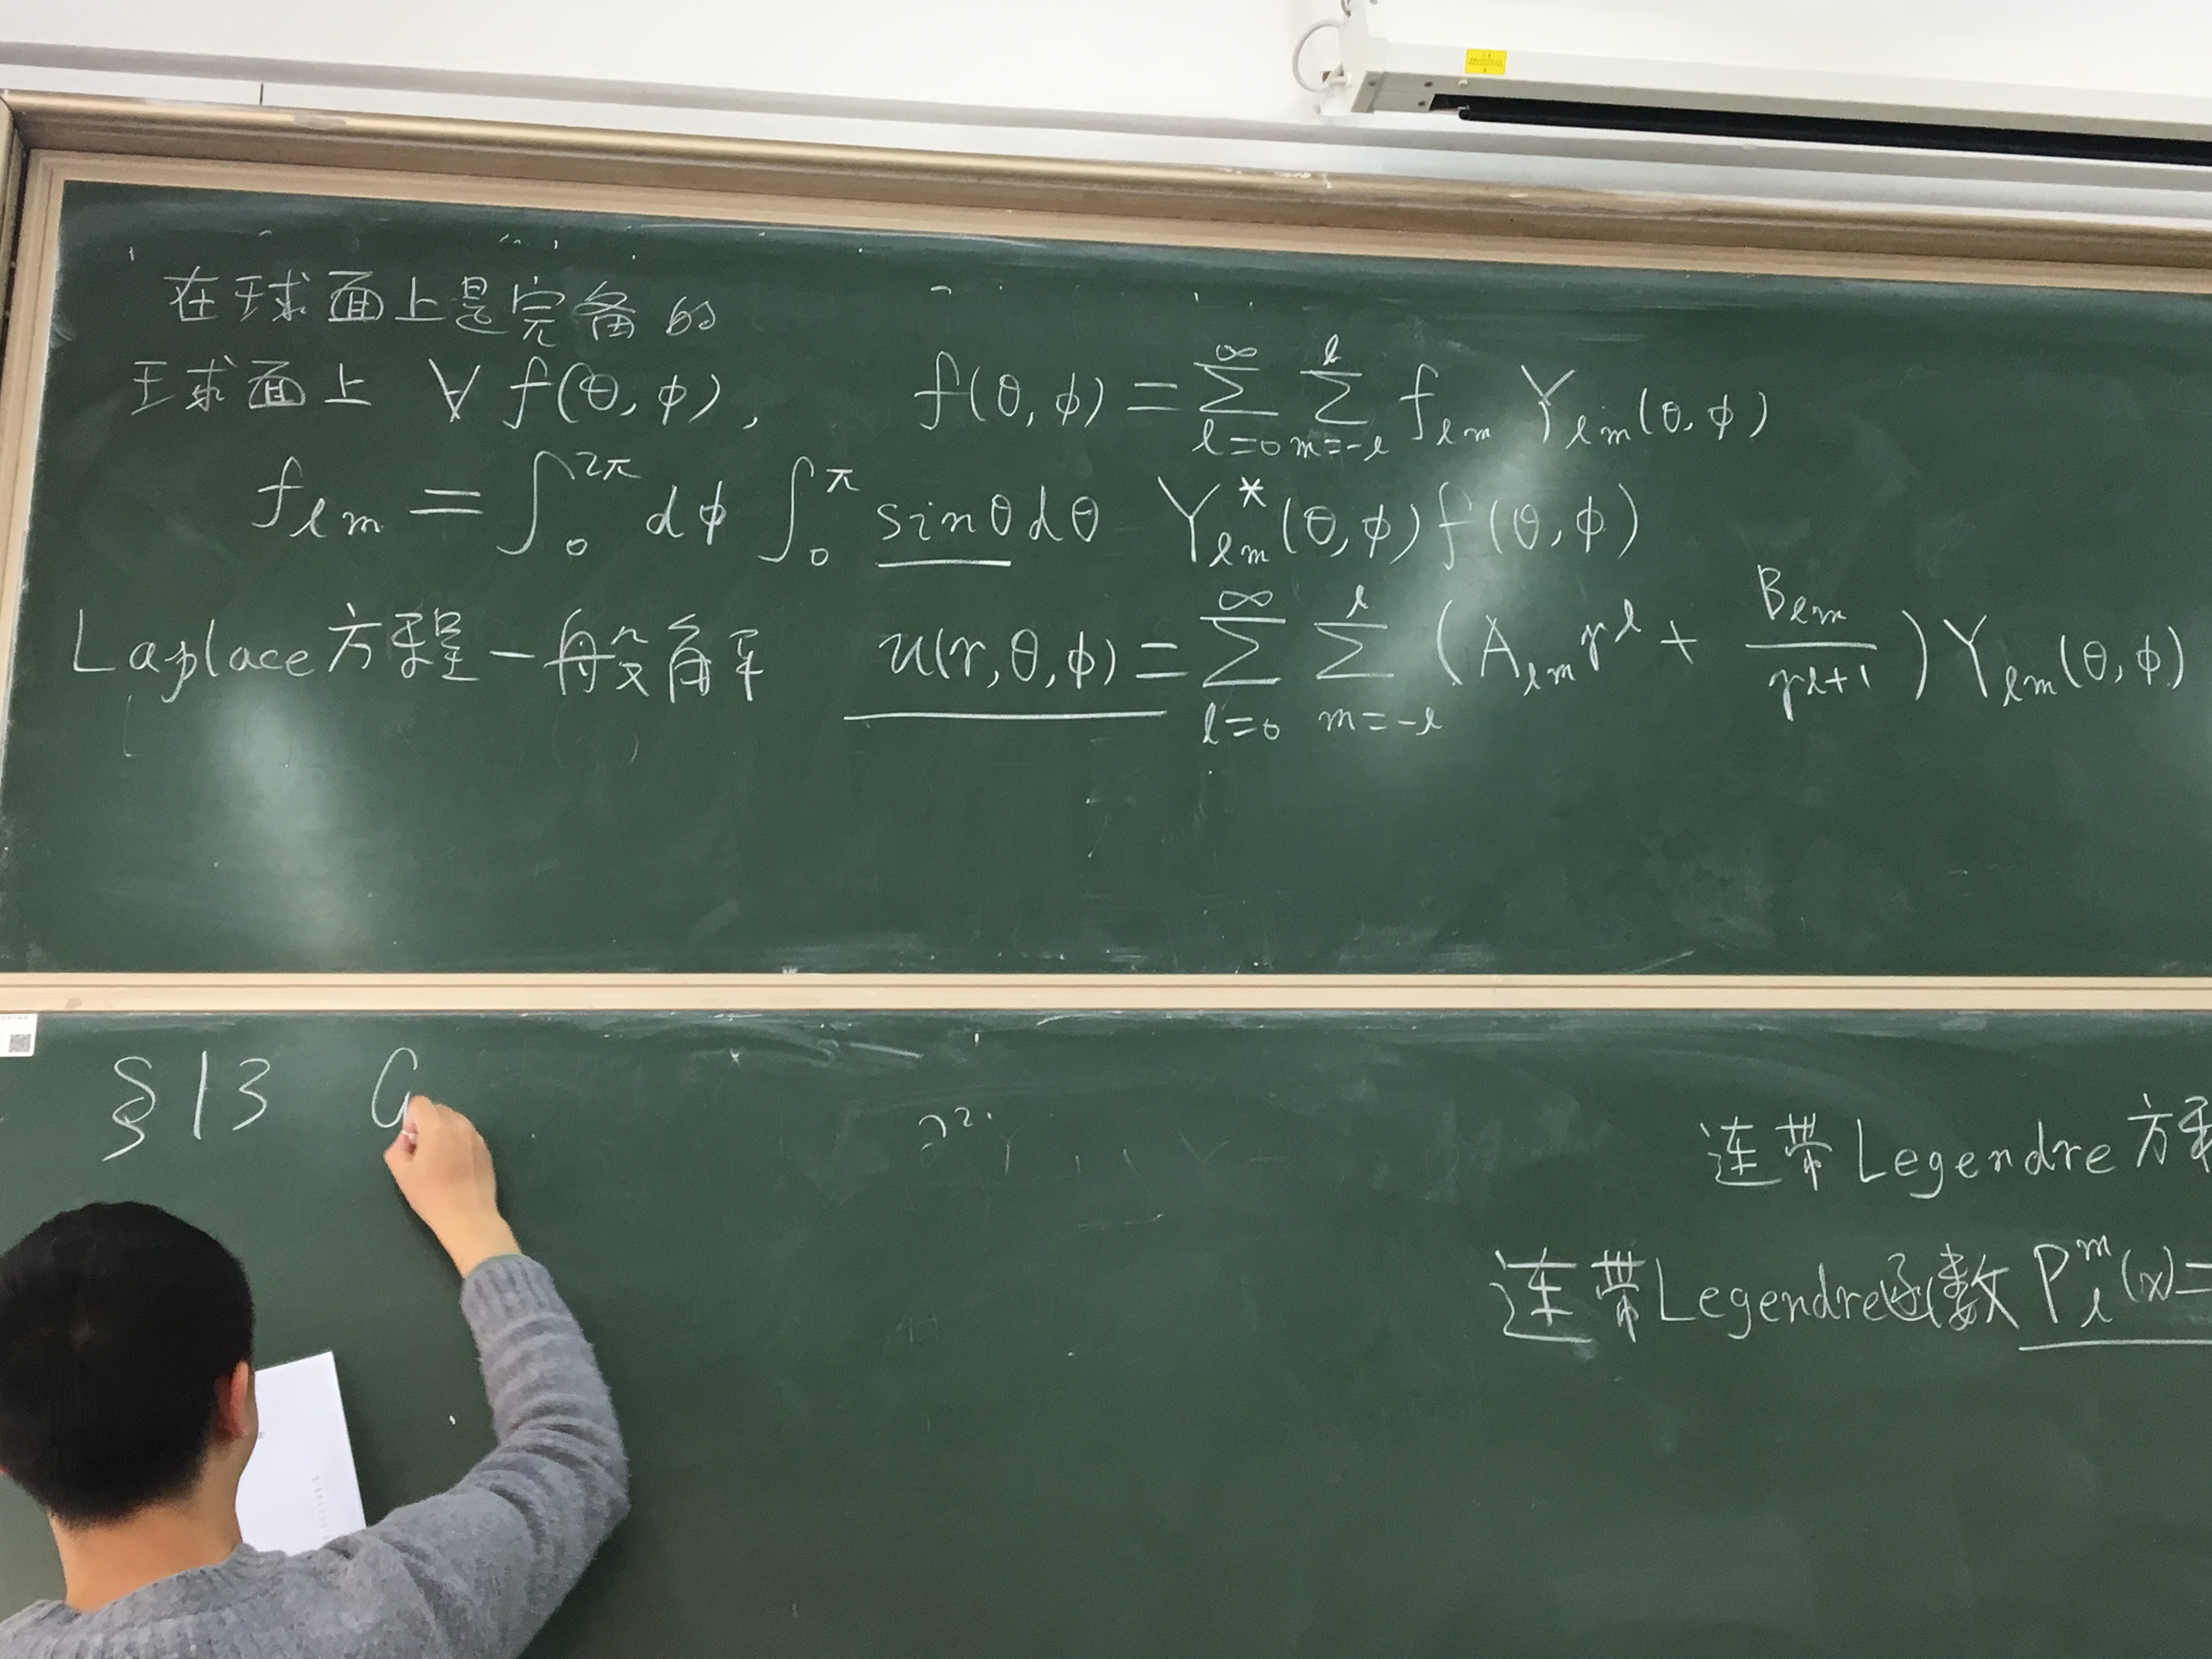 在球面上是完备的
球面上 ∀ f(θ,φ), f(θ,φ) = ∑_{l=0}^{∞} ∑_{m=-l}^{l} f_{lm} Y_{lm}(θ,φ)
f_{lm} = ∫_0^{2π} dφ ∫_0^π sinθdθ Y_{lm}^*(θ,φ) f(θ,φ)
Laplace方程一般解 u(r,θ,φ) = ∑_{l=0}^{∞} ∑_{m=-l}^{l} (A_{lm} r^l + B_{lm}/r^{l+1}) Y_{lm}(θ,φ)
§13 G
连带Legendre方程
连带Legendre函数 P_l^m(x)=